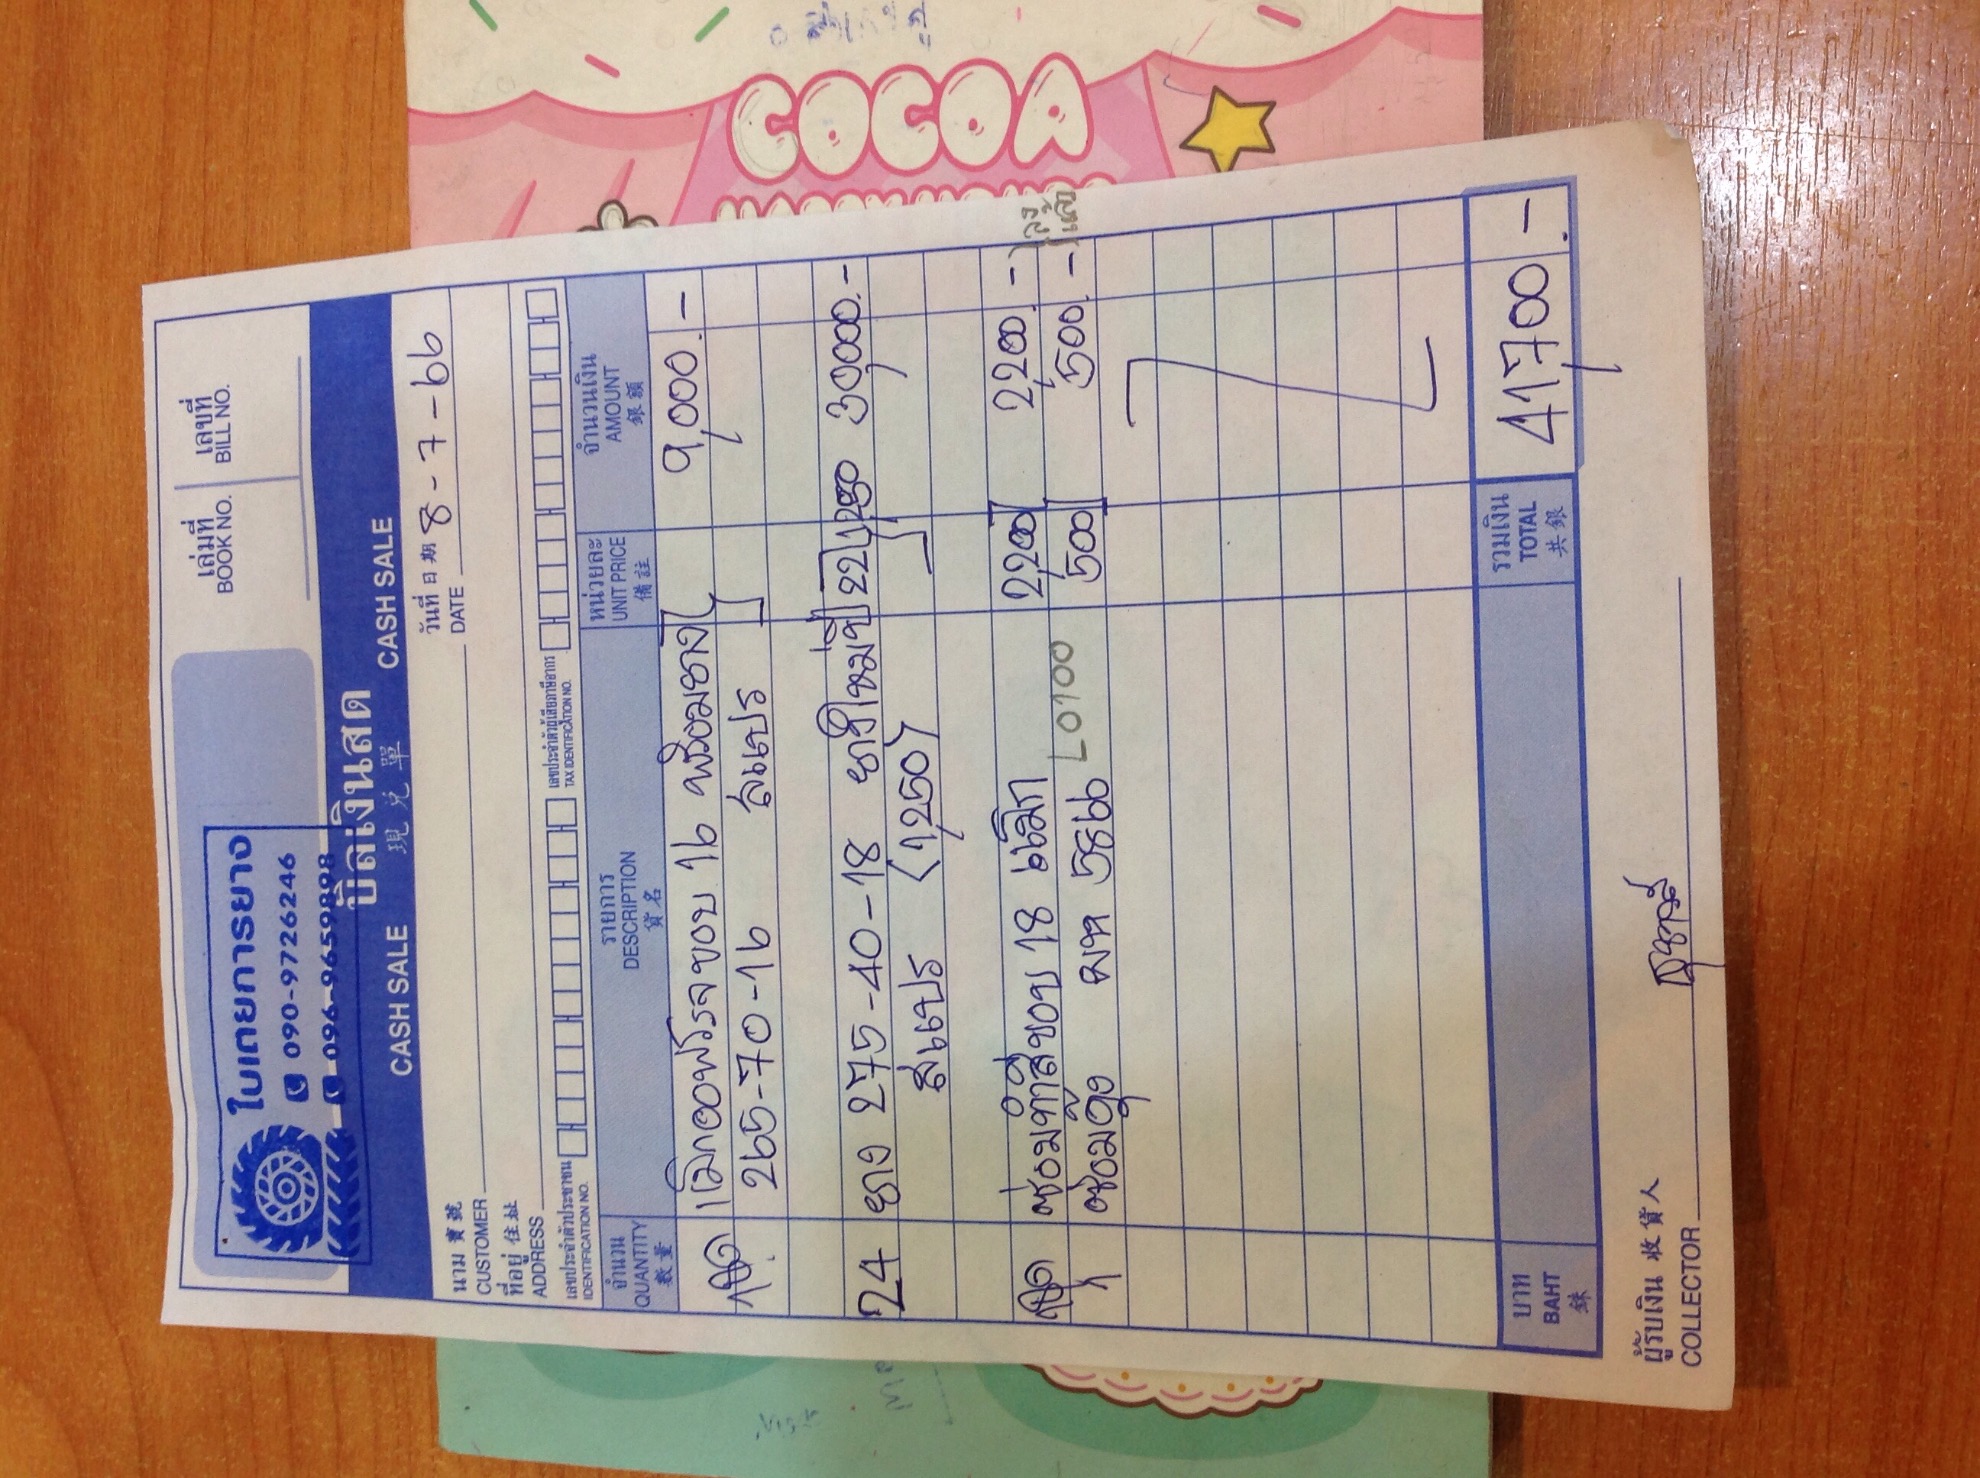 COCOA
ใบเตยการยาง
090-9726246
096-9659898
เล่มที่
BOOK NO.
เลขที่
BILL NO.
บิลเงินสด
CASH SALE 現兌單 CASH SALE
วันที่ 日期
DATE 8-7-66
นาม 寶號
CUSTOMER
ที่อยู่ 住址
ADDRESS
เลขประจำตัวประชาชน
IDENTIFICATION NO.
เลขประจำตัวผู้เสียภาษีอากร
TAX IDENTIFICATION NO.
จำนวน รายการ หน่วยละ จำนวนเงิน
QUANTITY DESCRIPTION UNIT PRICE AMOUNT
數量 貨名 備註 銀額
ขอบ 16 พร้อมยาง 9,000.-
265-70-16 สแปร
24 ยาง 275-40-18 ยางใหม่ปี 22 1,250 30,000.-
สแปร (1,250)
ซ่อมทำสีขอบ 18 2,200 2,200.-
ซ่อมดุง มห 5866 Lo100 500 500.-
แล้ว
บาท รวมเงิน
BAHT TOTAL 41700.-
銖 共銀
ผู้รับเงิน 收貨人
COLLECTOR